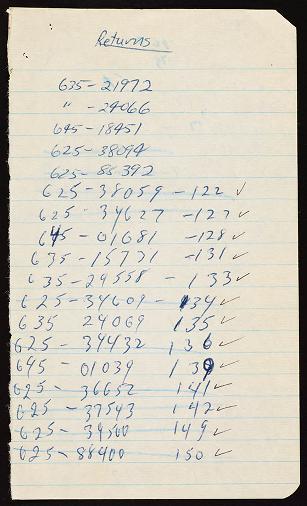 Returns
635-21972
" -24066
645-18451
625-38094
625-88392
625-38059 -122 ✓
625-34627 -127 ✓
645-01681 -128 ✓
635-15771 -131 ✓
635-24558 - 133 ✓
625-34609- 134 ✓
635 24069 135 ✓
625- 34432 136 ✓
645- 01039 139 ✓
625- 36652 141 ✓
625 - 37543 142 ✓
625- 34500 149 ✓
625-88400 150 ✓